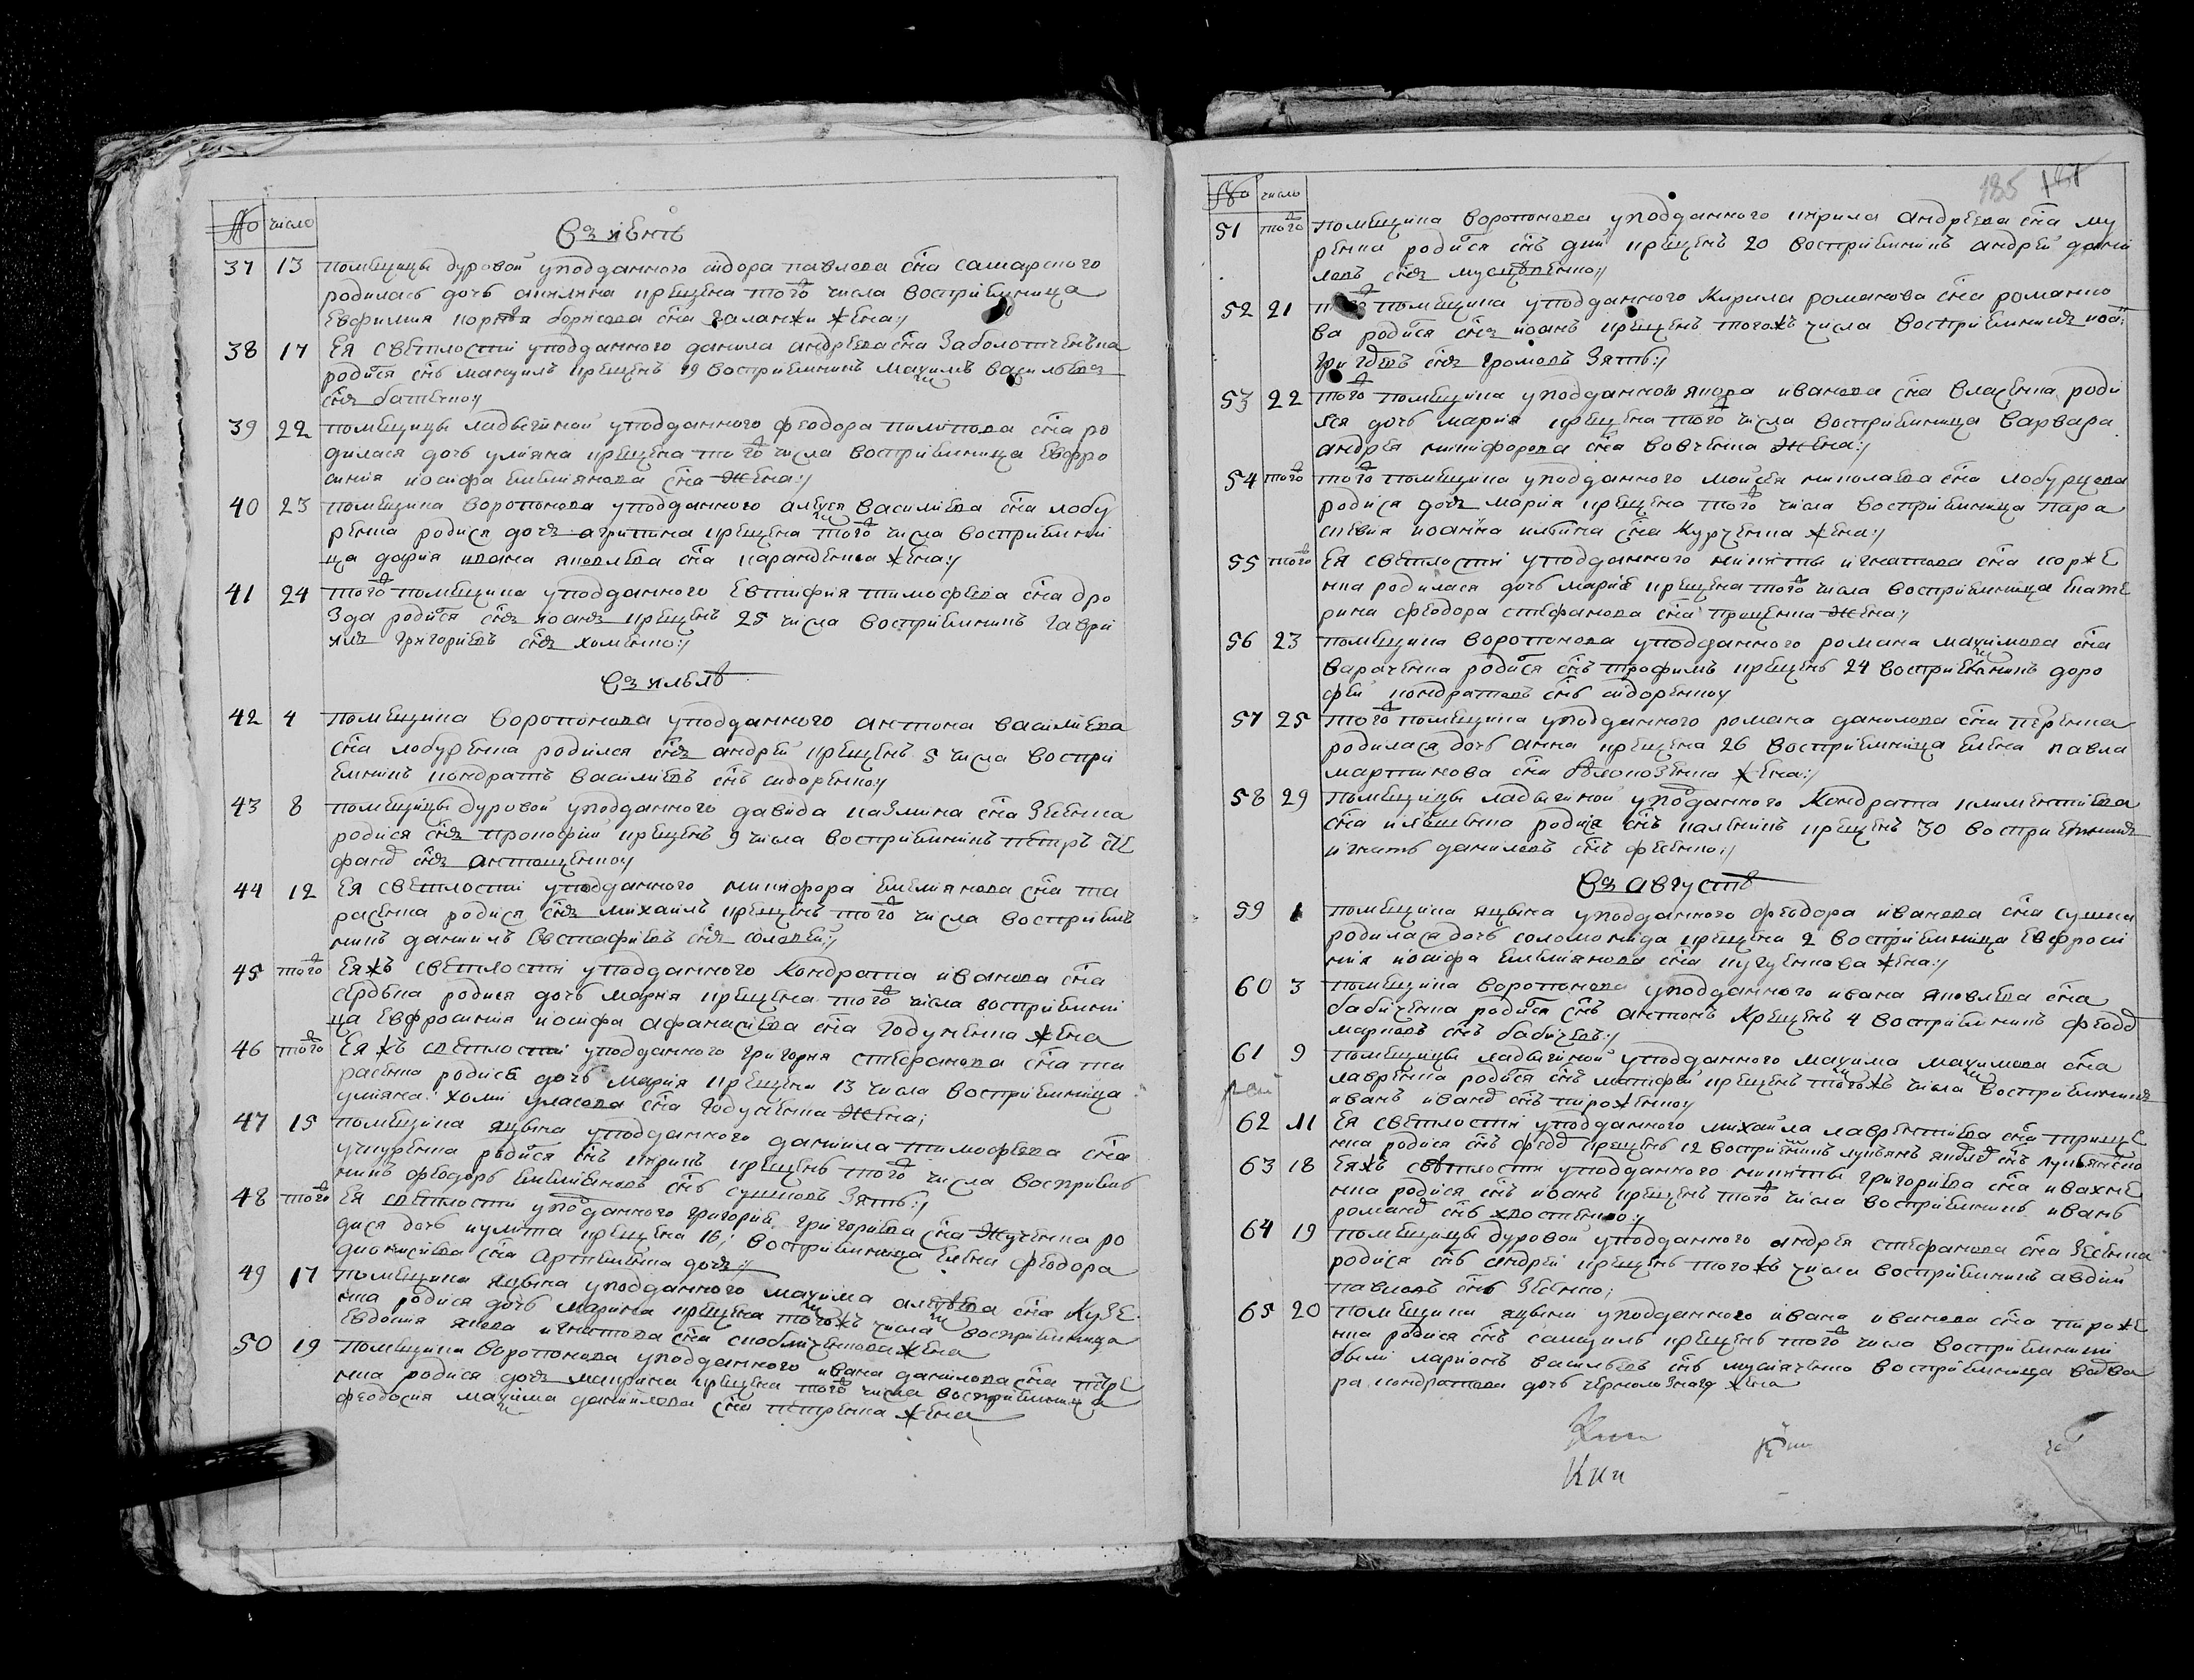 № число
Въ июнѣ
37 13 помѣщицы дуровой уподданного сидора павлова сна самарского
родилась дочь акилина крещена тогож числа восприемница
Евфимия корнѣя борисова сна галанжи жена:/
38 17 Ея свѣтлости уподданного данила андрѣева сна заболотченька
родися снъ мануилъ крещенъ 19 восприемникъ маѯимъ василѣевъ
снъ батенко:/
39 22 помѣщицы ладыгиной уподданного феодора пилипова сна ро
дилася дочь улияна крещена тогож числа восприемница Евфро
синия иосифа емелиянова сна жена:/
40 23 помѣщика воропонова уподданного алеѯея василиева сна лобу
ренка родися дочь агрипина крещена тогож числа восприемни
ца дария ивана яковлева сна карандеика жена:/
41 24 тогож помѣщика уподданного Евтифия тимофѣева сна дро
зда родися снъ иоанъ крещенъ 25 числа восприемникъ гаври
илъ григориевъ снъ хоменко:/
Въ июлѣ
42 4 помѣщика воропонова уподданного антона василиева
сна лобуренка родился снъ андрей крещенъ 5 числа воспри
емникъ кондратъ василиевъ снъ сидоренко:/
43 8 помѣщицы дуровой уподданного давида казмина сна зеенка
родися снъ прокофий крещенъ 9 числа восприемникъ петръ сте
фанов снъ антощенко:/
44 12 Ея свѣтлости уподданного никифора емелиянова сна та
расенка родися снъ михаилъ крещенъ тогож числа восприем
никъ даниилъ Евстафиевъ снъ соловей:/
45 тогож Еяжъ свѣтлости уподданного кондрата иванова сна
сердюка родися дочь мария крещена тогож числа восприемни
ца Евфросиния иосифа афанасиева сна годуненка жена
46 тогож Еяжъ свѣтлости уподданного григория стефанова сна та
расенка родися дочь мария крещена 13 числа восприемница
улияна хоми уласова сна годуненка жена;
47 15 помѣщика яцына уподданного даниила тимофѣева сна
учкуренка родися снъ кирикъ крещенъ тогож числа восприем
никъ феодоръ емелияновъ снъ сушковъ зять:/
48 тогож Ея свѣтлости уподданного григория григориева сна жученка ро
дися дочь иулита крещена 16; восприемница елена феодора
дионисиева сна артеменка дочь:/
49 17 помѣщика яцына уподданного маѯима алеѯѣева сна кузе
нка родися дочь марина крещена тогожъ числа восприемница
Евдокия якова игнатова сна жена
50 19 помѣщика воропонова уподданного ивана данилова сна петре
нка родися дочь макрина крещена тогож числа восприемница
феодосия маѯима даниилова сна петренка жена
185
№ число
51 тогож помѣщика воропонова уподданного кирила андрѣева сна му
ренка родися снъ крещенъ 20 восприемникъ андрей дани
ловъ снъ
52 21 тогож помѣщика уподданного кирила романова сна романко
ва родися снъ иоанъ крещенъ тогожъ числа восприемникъ
григориевъ снъ громовъ зять:/
53 22 тогож помѣщика уподданного якова иванова сна власенка роди
лся дочь мария крещена тогож числа восприемница варвара
андрѣя никифорова сна вовченка жена:/
54 тогож тогож помѣщика уподданного моисѣя николаева сна лобурцова
родися дочь мария крещена тогож числа восприемница пара
скевия иоанна илиина сна курченка жена:/
55 тогож Ея свѣтлости уподданного никиты игнатова сна корже
нка родилася дочь мария крещена тогож числа восприемница екате
рина феодора стефанова сна проценка жена:/
56 23 помѣщика воропонова уподданного романа маѯимова сна
вараченка родися снъ трофимъ крещенъ 24 восприемникъ доро
фей кондратовъ снъ сидоренко:/
57 25 тогож помѣщика уподданного романа данилова сна петренка
родилася дочь анна крещена 26 восприемница елена павла
мартинова сна белокозенка жена:/
58 29 помѣщицы ладыгиной уподданного кондрата климентиева
сна родися снъ каленикъ крещенъ 30 восприемникъ
игнатъ даниловъ снъ феенко:/
Въ августѣ
59 1 помѣщика яцына уподданного феодора иванова сна сушка
родилася дочь соломонида крещена 2 восприемница Евфроси
ния иосифа емелиянова сна жена:/
60 3 помѣщика воропонова уподданного ивана яковлева сна
бабиченка родися снъ антонъ крещенъ 4 восприемникъ феодор
марковъ снъ бабичевъ:/
61 9 помѣщицы ладыгиной уподданного маѯима маѯимова сна
лавренка родися снъ матфей крещенъ тогожъ числа восприемникъ
иванъ иванов снъ пироженко:/
62 11 Ея свѣтлости уподданного михаила лаврентиева сна трище
нка родися снъ феодор крещенъ 12 восприемникъ лукиянъ яковлев снъ лукьянченко
63 18 Еяжъ свѣтлости уподданного никиты григориева сна ивахне
нка родися снъ иванъ крещенъ тогож числа восприемникъ иванъ
романов снъ хвостенко:/
64 19 помѣщицы дуровой уподданного андрѣя стефанова сна зеенка
родися снъ андрей крещенъ тогожъ числа восприемникъ авдий
павловъ снъ зеенко;
65 20 помѣщика яцына уподданного ивана иванова сна пироже
нка родися снъ самуилъ крещенъ тогож числа восприемники
были ларионъ василиевъ снъ мусияченко восприемница варва
ра кондратова дочь жена